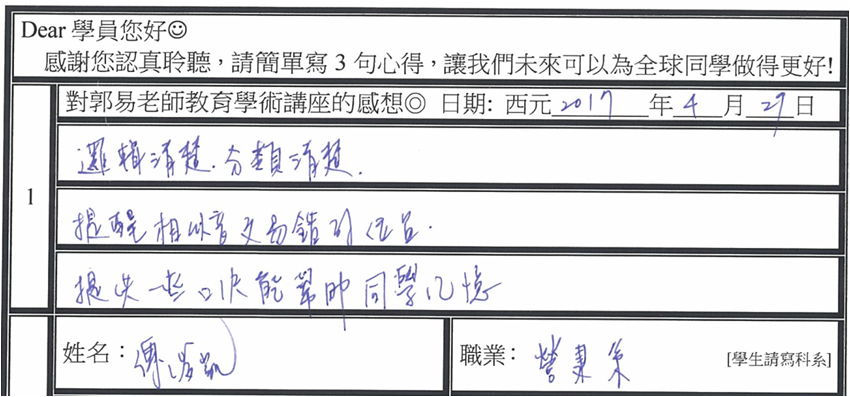 Dear 學員您好☺
感謝您認真聆聽，請簡單寫 3 句心得，讓我們未來可以為全球同學做得更好!
1
對郭易老師教育學術講座的感想◎ 日期: 西元 2017 年 4 月 29 日
邏輯清楚.分類清楚.
提醒相似音又易錯的位置.
提供一些口訣能幫助同學記憶
姓名：傅
職業： 營業 [學生請寫科系]